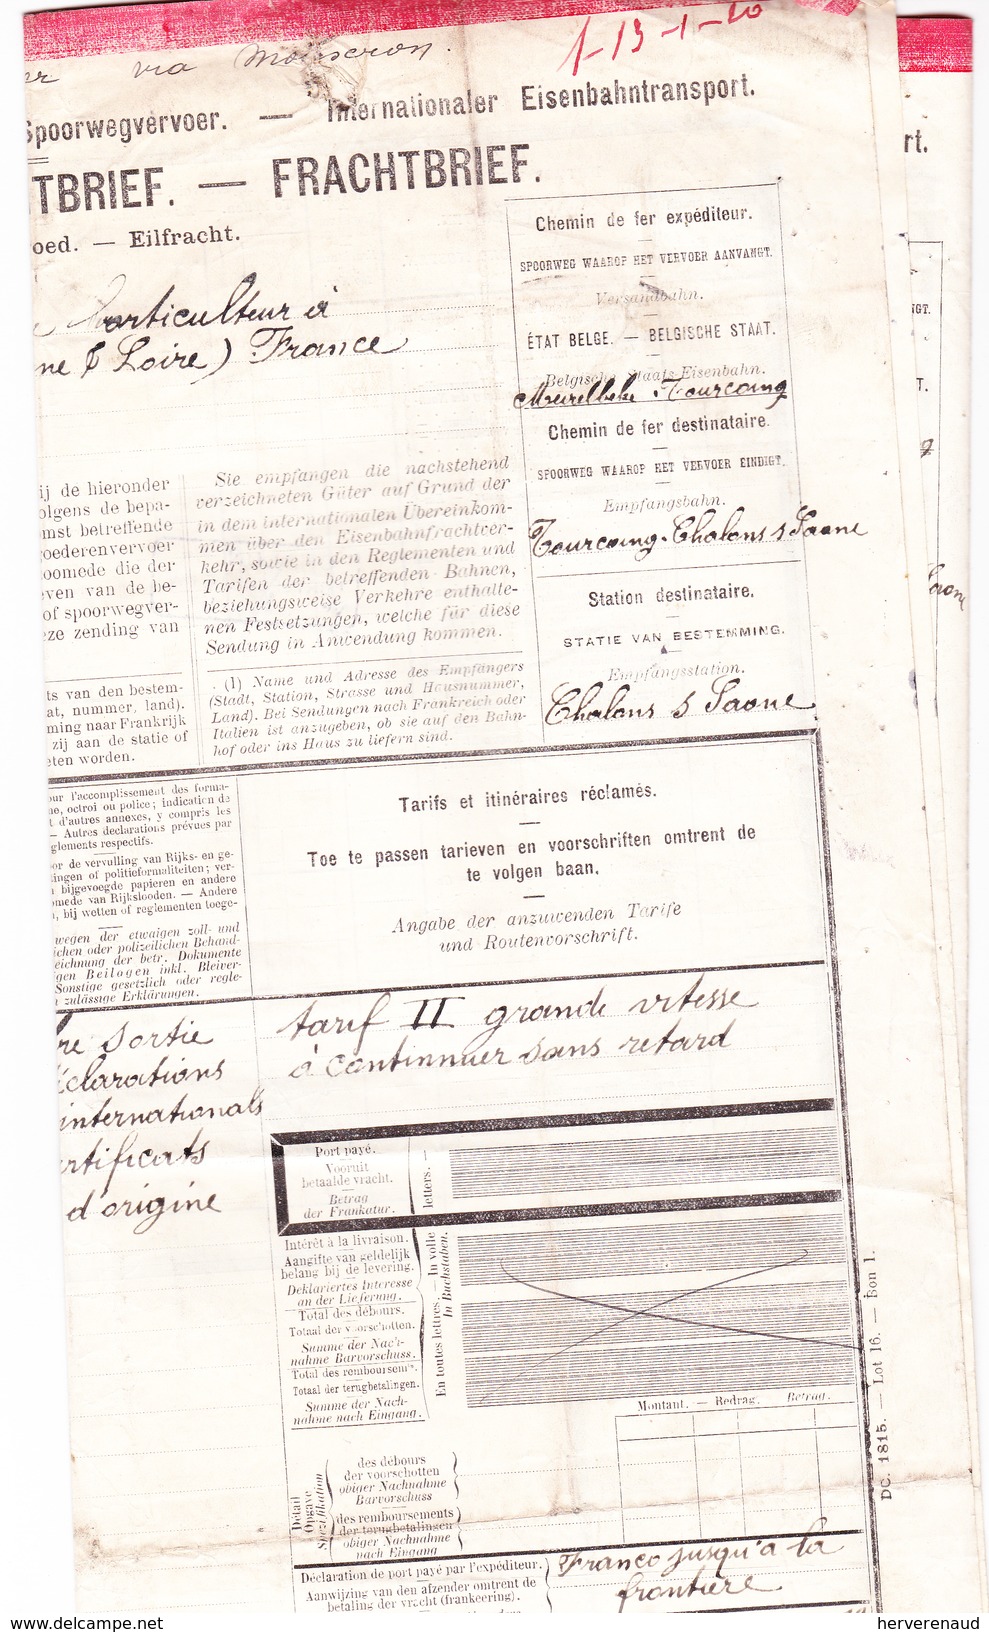 via Mouscron.
1-13-1-20
Spoorwegvervoer. — Internationaler Eisenbahntransport.
TBRIEF. — FRACHTBRIEF.
oed. — Eilfracht.
horticulteur à
ne & Loire) France
Chemin de fer expéditeur.
SPOORWEG WAAROP HET VERVOER AANVANGT.
Versandbahn.
ÉTAT BELGE. — BELGISCHE STAAT.
Belgische Staats-Eisenbahn.
Meirelbeke - Tourcoing
Chemin de fer destinataire.
SPOORWEG WAAROP HET VERVOER EINDIGT.
Empfangsbahn.
Tourcoing-Chalons s Saone
Station destinataire.
STATIE VAN BESTEMMING.
Empfangsstation.
Chalons S Saone
ij de hieronder
olgens de bepa-
mst betreffende
oederenvervoer
oomede die der
ven van de be-
of spoorwegver-
ze zending van
Sie empfangen die nachstehend
verzeichneten Güter auf Grund der
in dem internationalen Übereinkom-
men über den Eisenbahnfrachtver-
kehr, sowie in den Reglementen und
Tarifen der betreffenden Bahnen,
beziehungsweise Verkehre enthalte-
nen Festsetzungen, welche für diese
Sendung in Anwendung kommen.
ts van den bestem-
at, nummer, land).
ming naar Frankrijk
zij aan de statie of
eten worden.
(1) Name und Adresse des Empfängers
(Stadt, Station, Strasse und Hausnummer,
Land). Bei Sendungen nach Frankreich oder
Italien ist anzugeben, ob sie auf den Bahn-
hof oder ins Haus zu liefern sind.
our l'accomplissement des forma-
ne, octroi ou police; indication de
t d'autres annexes, y compris les
— Autres déclarations prévues par
glements respectifs.
or de vervulling van Rijks- en ge-
ingen of politieformaliteiten; ver-
bijgevoegde papieren en andere
omede van Rijkslooden. — Andere
, bij wetten of reglementen toege-
wegen der etwaigen zoll- und
ichen oder polizeilichen Behand-
eichnung der betr. Dokumente
gen Beilagen inkl. Bleiver-
Sonstige gesetzlich oder regle-
zulässige Erklärungen.
Tarifs et itinéraires réclamés.
Toe te passen tarieven en voorschriften omtrent de
te volgen baan.
Angabe der anzuwenden Tarife
und Routenvorschrift.
re sortie
éclarations
internationals
rtificats
d'origine
tarif II grande vitesse
à continnuer sans retard
Port payé.
Vooruit
betaalde vracht.
Betrag
der Frankatur.
letters. —
Intérêt à la livraison.
Aangifte van geldelijk
belang bij de levering.
Deklariertes Interesse
an der Lieferung.
Total des débours.
Totaal der voorschotten.
Summe der Nach-
nahme Barvorschuss.
Total des remboursem'ts.
Totaal der terugbetalingen.
Summe der Nach-
nahme nach Eingang.
En toutes lettres. In volle
In Buchstaben.
Montant. — Bedrag. Betrag.
Détail
Opgave
Spezifikation
des débours
der voorschotten
obiger Nachnahme
Barvorschuss
des remboursements
der terugbetalingen
obiger Nachnahme
nach Eingang
Déclaration de port payé par l'expéditeur.
Aanwijzing van den afzender omtrent de
betaling der vracht (frankeering).
Franco jusqu'à la
frontiere
DC. 1815. — Lot 16. — Bon 1.
rt.
NGT.
T.
herverenaud
www.delcampe.net